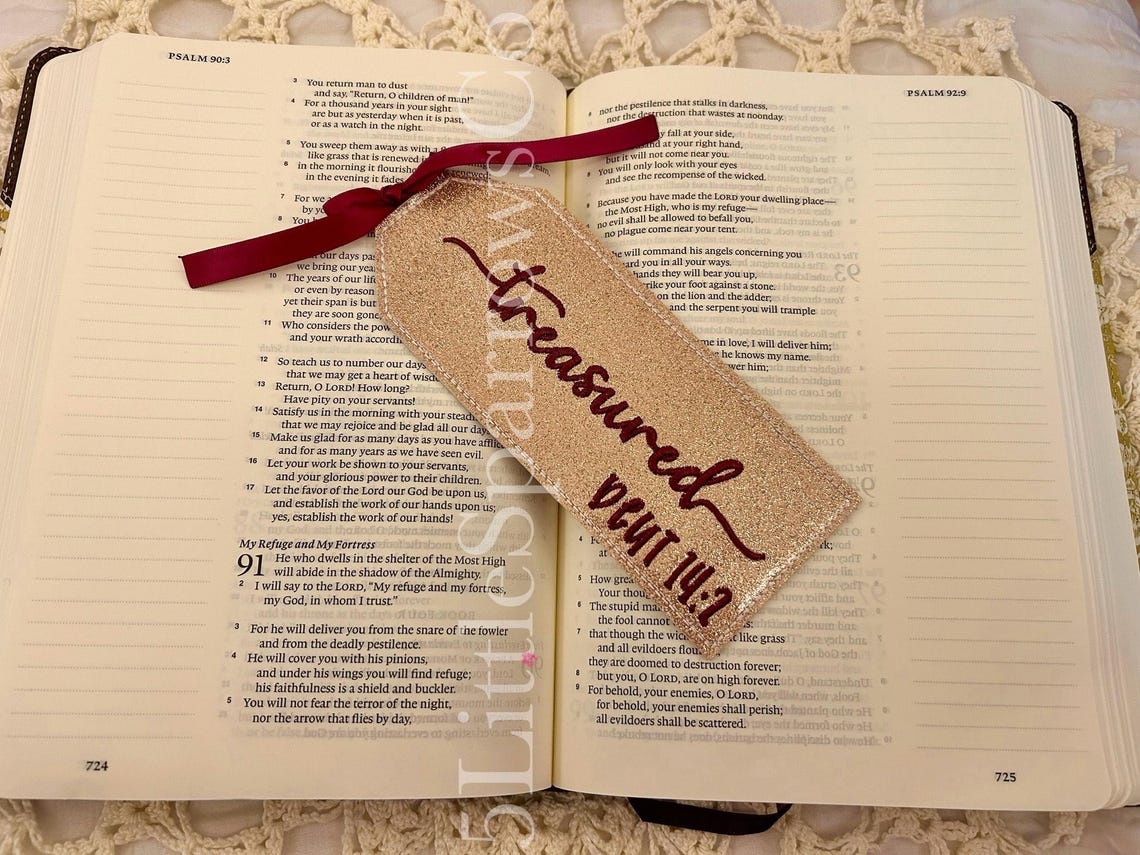 PSALM 90:3
3 You return man to dust
and say, "Return, O children of man!"
4 For a thousand years in your sight
are but as yesterday when it is past,
or as a watch in the night.
5 You sweep them away as with a
like grass that is renewed
6 in the morning it
in the evening it fades
7 For we
by
8 You
our days
we bring our
10 The years of our
or even by reason
yet their span is but
they are soon gone,
11 Who considers the
and your wrath
12 So teach us to number our days
that we may get a heart of
13 Return, O LORD! How long?
Have pity on your servants!
14 Satisfy us in the morning with your
that we may rejoice and be glad all our
15 Make us glad for as many days as you have
and for as many years as we have seen evil.
16 Let your work be shown to your servants,
and your glorious power to their children.
17 Let the favor of the Lord our God be upon us,
and establish the work of our hands upon us;
yes, establish the work of our hands!
My Refuge and My Fortress
91 He who dwells in the shelter of the Most High
will abide in the shadow of the Almighty.
2 I will say to the LORD, "My refuge and my fortress,
my God, in whom I trust."
3 For he will deliver you from the snare of the fowler
and from the deadly pestilence.
4 He will cover you with his pinions,
and under his wings you will find refuge;
his faithfulness is a shield and buckler.
5 You will not fear the terror of the night,
nor the arrow that flies by day,
724
PSALM 92:9
6 nor the pestilence that stalks in darkness,
nor the destruction that wastes at noonday.
fall at your side,
at your right hand,
but it will not come near you.
8 You will only look with your eyes
and see the recompense of the wicked.
9 Because you have made the LORD your dwelling place—
the Most High, who is my refuge—
10 no evil shall be allowed to befall you,
no plague come near your tent.
he will command his angels concerning you
you in all your ways.
hands they will bear you up,
your foot against a stone.
on the lion and the adder;
and the serpent you will trample
me in love, I will deliver him;
he knows my name.
him;
treasured
DEUT 14:2
4 For
at
5 How
Your
6 The stupid
the fool cannot
7 that though the like grass
and all evildoers
they are doomed to destruction forever;
8 but you, O LORD, are on high forever.
9 For behold, your enemies, O LORD,
for behold, your enemies shall perish;
all evildoers shall be scattered.
725
5LittleSparrowsCo